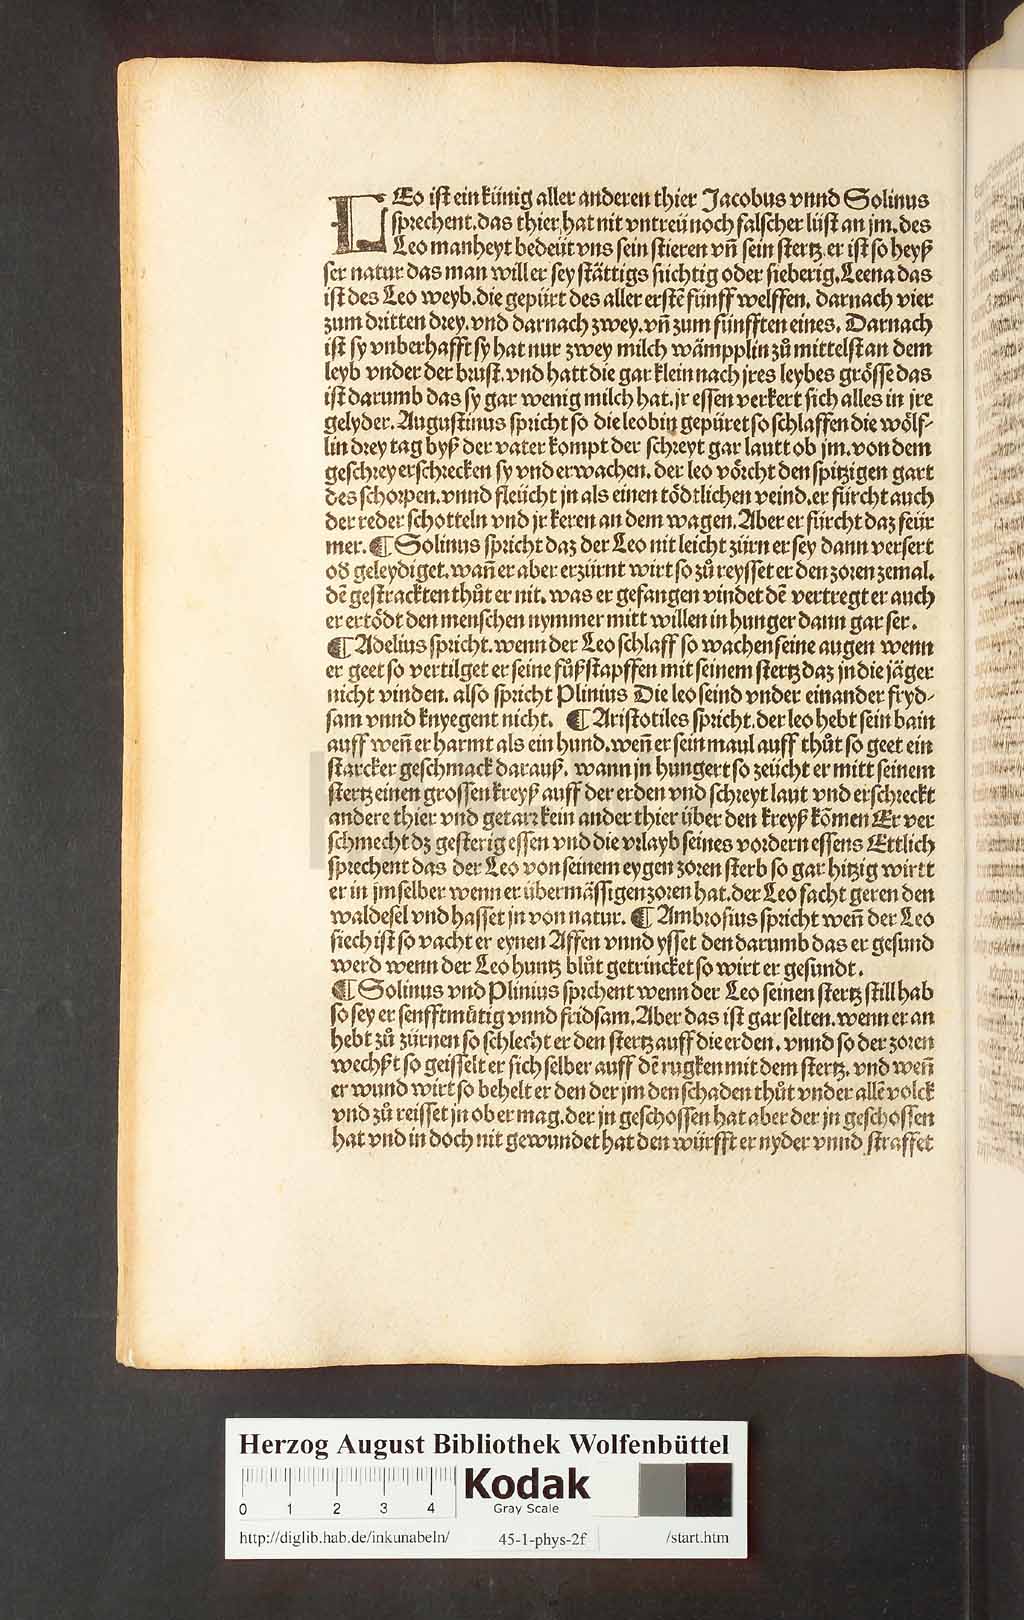 LEo ist ein künig aller anderen thier Jacobus vnnd Solinus
sprechent. das thier hat nit vntreü noch falscher lüst an jm. des
Leo manheyt bedeüt vns sein stieren vn̄ sein stertz. er ist so heyß
ser natur das man will er sey stättigs süchtig oder fieberig. Leena das
ist des Leo weyb. die gepürt des aller erstē fünff welffen. darnach vier
zum dritten drey. vnd darnach zwey. vn̄ zum fünfften eines. Darnach
ist sy vnberhafft sy hat nur zwey milch wämpplin zů mittelst an dem
leyb vnder der brust. vnd hatt die gar klein nach jres leybes grösse das
ist darumb das sy gar wenig milch hat. jr essen verkert sich alles in jre
gelyder. Augustinus spricht so die leobin gepüret so schlaffen die wölf-
lin drey tag byß der vater kompt der schreyt gar lautt ob jm. von dem
geschrey erschrecken sy vnd erwachen. der leo vörcht den spitzigen gart
des schorpen. vnnd fleücht jn als einen tödtlichen veind. er fürcht auch
der reder schotteln vnd jr keren an dem wagen. Aber er fürcht daz feür
mer. ¶ Solinus spricht daz der Leo nit leicht zürn er sey dann versert
od̄ geleydiget. wan̄ er aber erzürnt wirt so zů reysset er den zoren zemal.
dē gestrackten thůt er nit. was er gefangen vindet dē vertregt er auch
er ertödt den menschen nymmer mitt willen in hunger dann gar ser.
¶ Adelius spricht. wenn der Leo schlaff so wachen seine augen wenn
er geet so vertilget er seine fůßstapffen mit seinem stertz daz jn die jäger
nicht vinden. also spricht Plinius Die leo seind vnder einander fryd-
sam vnnd knyegent nicht. ¶ Aristotiles spricht. der leo hebt sein bain
auff wen̄ er harmt als ein hund. wen̄ er sein maul auff thůt so geet ein
starcker geschmack darauß. wann jn hungert so zeücht er mitt seinem
stertz einen grossen kreyß auff der erden vnd schreyt laut vnd erschreckt
andere thier vnd getarr kein ander thier über den kreyß kōmen Er ver
schmecht dz gesterig essen vnd die vrlayb seines vordern essens Ettlich
sprechent das der Leo von seinem eygen zoren sterb so gar hitzig wirtt
er in jm selber wenn er übermässigen zoren hat. der Leo facht geren den
waldesel vnd hasset jn von natur. ¶ Ambrosius spricht wen̄ der Leo
siech ist so vacht er eynen Affen vnnd ysset den darumb das er gesund
werd wenn der Leo huntz blůt getrincket so wirt er gesundt.
¶ Solinus vnd Plinius sprchent wenn der Leo seinen stertz still hab
so sey er senfftmůtig vnnd fridsam. Aber das ist gar selten. wenn er an
hebt zů zürnen so schlecht er den stertz auff die erden. vnnd so der zoren
wechßt so geisselt er sich selber auff dē rugken mit dem stertz. vnd wen̄
er wund wirt so behelt er den der jm den schaden thůt vnder allē volck
vnd zů reisset jn ob er mag. der jn geschossen hat aber der jn geschossen
hat vnd in doch nit gewundet hat den würfft er nyder vnnd straffet
Herzog August Bibliothek Wolfenbüttel
0 1 2 3 4
Kodak
Gray Scale
http://diglib.hab.de/inkunabeln/ 45-1-phys-2f /start.htm